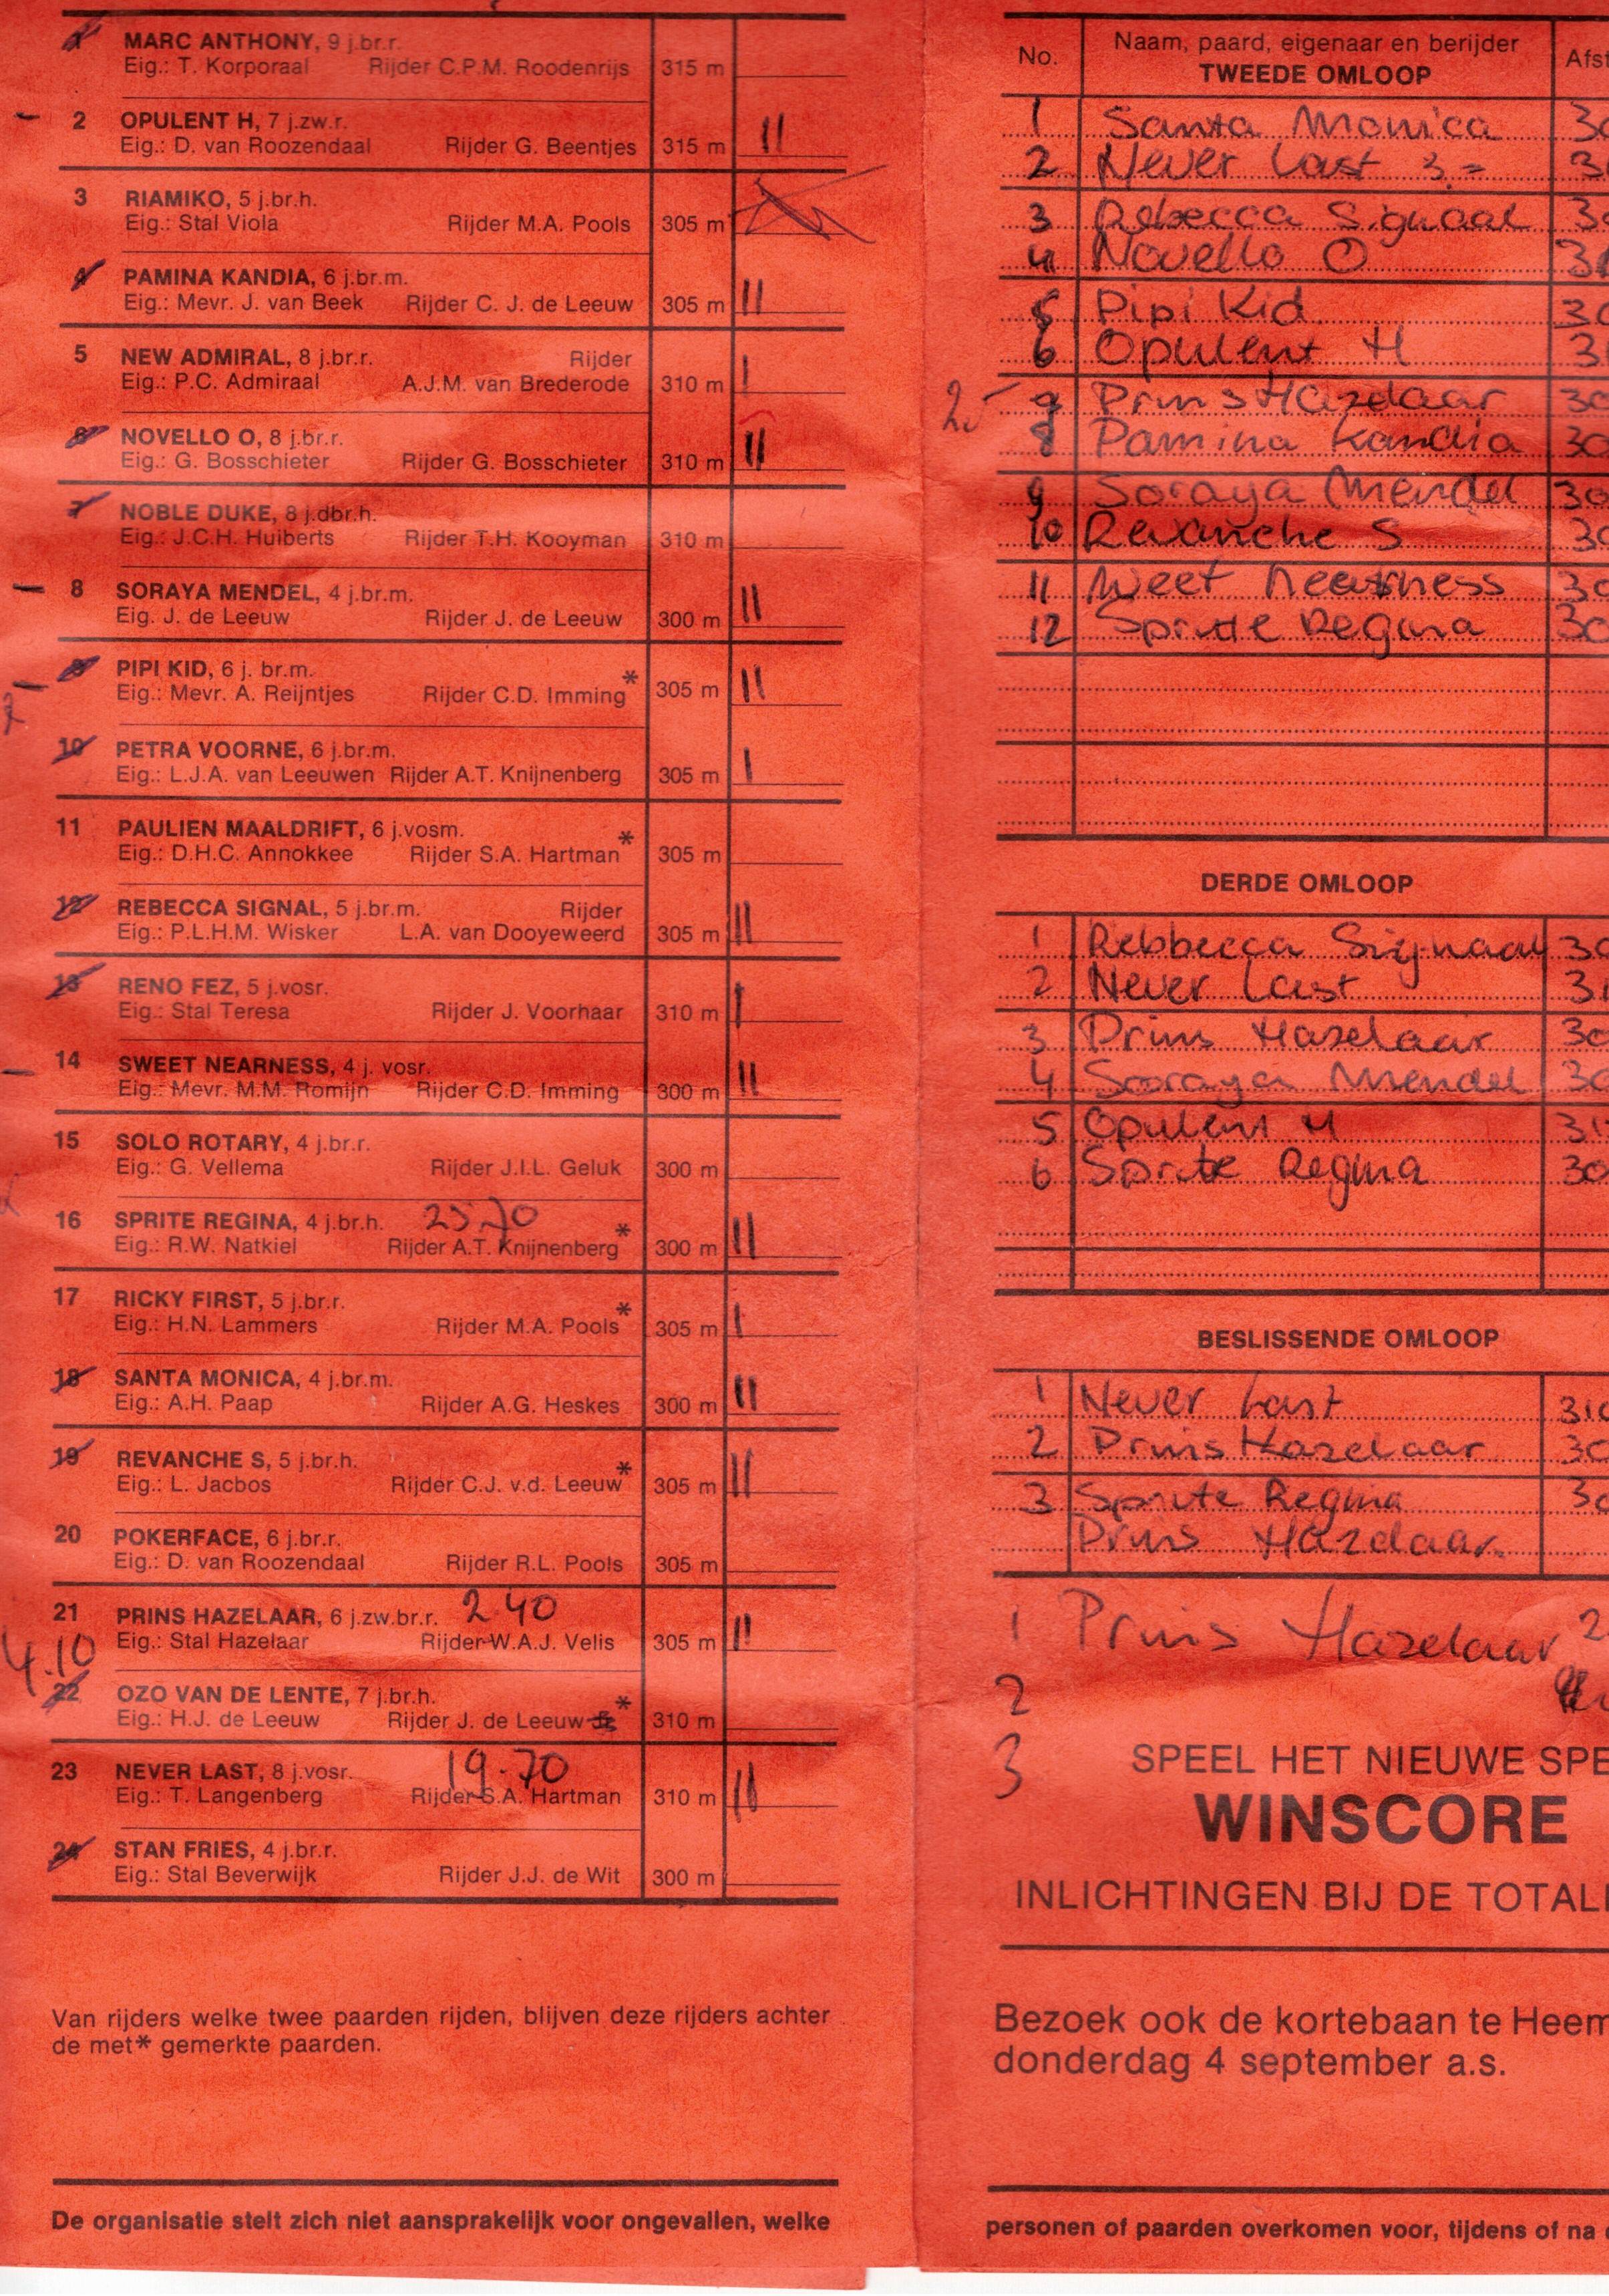 1 MARC ANTHONY, 9 j.br.r.
Eig.: T. Korporaal Rijder C.P.M. Roodenrijs 315 m
2 OPULENT H, 7 j.zw.r.
Eig.: D. van Roozendaal Rijder G. Beentjes 315 m
3 RIAMIKO, 5 j.br.h.
Eig.: Stal Viola Rijder M.A. Pools 305 m
4 PAMINA KANDIA, 6 j.br.m.
Eig.: Mevr. J. van Beek Rijder C. J. de Leeuw 305 m
5 NEW ADMIRAL, 8 j.br.r. Rijder
Eig.: P.C. Admiraal A.J.M. van Brederode 310 m
6 NOVELLO O, 8 j.br.r.
Eig.: G. Bosschieter Rijder G. Bosschieter 310 m
7 NOBLE DUKE, 8 j.dbr.h.
Eig.: J.C.H. Huiberts Rijder T.H. Kooyman 310 m
8 SORAYA MENDEL, 4 j.br.m.
Eig. J. de Leeuw Rijder J. de Leeuw 300 m
9 PIPI KID, 6 j. br.m.
Eig.: Mevr. A. Reijntjes Rijder C.D. Imming* 305 m
10 PETRA VOORNE, 6 j.br.m.
Eig.: L.J.A. van Leeuwen Rijder A.T. Knijnenberg 305 m
11 PAULIEN MAALDRIFT, 6 j.vosm.
Eig.: D.H.C. Annokkee Rijder S.A. Hartman* 305 m
12 REBECCA SIGNAL, 5 j.br.m. Rijder
Eig.: P.L.H.M. Wisker L.A. van Dooyeweerd 305 m
13 RENO FEZ, 5 j.vosr.
Eig.: Stal Teresa Rijder J. Voorhaar 310 m
14 SWEET NEARNESS, 4 j. vosr.
Eig.: Mevr. M.M. Romijn Rijder C.D. Imming 300 m
15 SOLO ROTARY, 4 j.br.r.
Eig.: G. Vellema Rijder J.I.L. Geluk 300 m
16 SPRITE REGINA, 4 j.br.h. 25.70
Eig.: R.W. Natkiel Rijder A.T. Knijnenberg* 300 m
17 RICKY FIRST, 5 j.br.r.
Eig.: H.N. Lammers Rijder M.A. Pools* 305 m
18 SANTA MONICA, 4 j.br.m.
Eig.: A.H. Paap Rijder A.G. Heskes 300 m
19 REVANCHE S, 5 j.br.h.
Eig.: L. Jacbos Rijder C.J. v.d. Leeuw* 305 m
20 POKERFACE, 6 j.br.r.
Eig.: D. van Roozendaal Rijder R.L. Pools 305 m
21 PRINS HAZELAAR, 6 j.zw.br.r. 2.40
4.10 Eig.: Stal Hazelaar Rijder W.A.J. Velis 305 m
22 OZO VAN DE LENTE, 7 j.br.h.
Eig.: H.J. de Leeuw Rijder J. de Leeuw * 310 m
23 NEVER LAST, 8 j.vosr. 19.70
Eig.: T. Langenberg Rijder S.A. Hartman 310 m
24 STAN FRIES, 4 j.br.r.
Eig.: Stal Beverwijk Rijder J.J. de Wit 300 m
Van rijders welke twee paarden rijden, blijven deze rijders achter
de met* gemerkte paarden.
De organisatie stelt zich niet aansprakelijk voor ongevallen, welke
No. Naam, paard, eigenaar en berijder Afst
TWEEDE OMLOOP
1 Santa Monica 30
2 Never Last 3
3 Rebecca Signaal 30
4 Novello O 31
5 Pipi Kid 30
6 Opulent H 31
7 Prins Hazelaar 30
8 Pamina Kandia 30
9 Soraya Mendel 30
10 Revanche S 30
11 Weet Nearness 30
12 Sprite Regina 30
DERDE OMLOOP
1 Rebbecca Signaal 30
2 Never Last 31
3 Prins Hazelaar 30
4 Sooraya Mendel 30
5 Opulent H 31
6 Sprite Regina 30
BESLISSENDE OMLOOP
1 Never Last 310
2 Prins Hazelaar 30
3 Sprite Regina 30
Prins Hazelaar
1 Prins Hazelaar 2
2
3
SPEEL HET NIEUWE SPE
WINSCORE
INLICHTINGEN BIJ DE TOTALI
Bezoek ook de kortebaan te Heem
donderdag 4 september a.s.
personen of paarden overkomen voor, tijdens of na